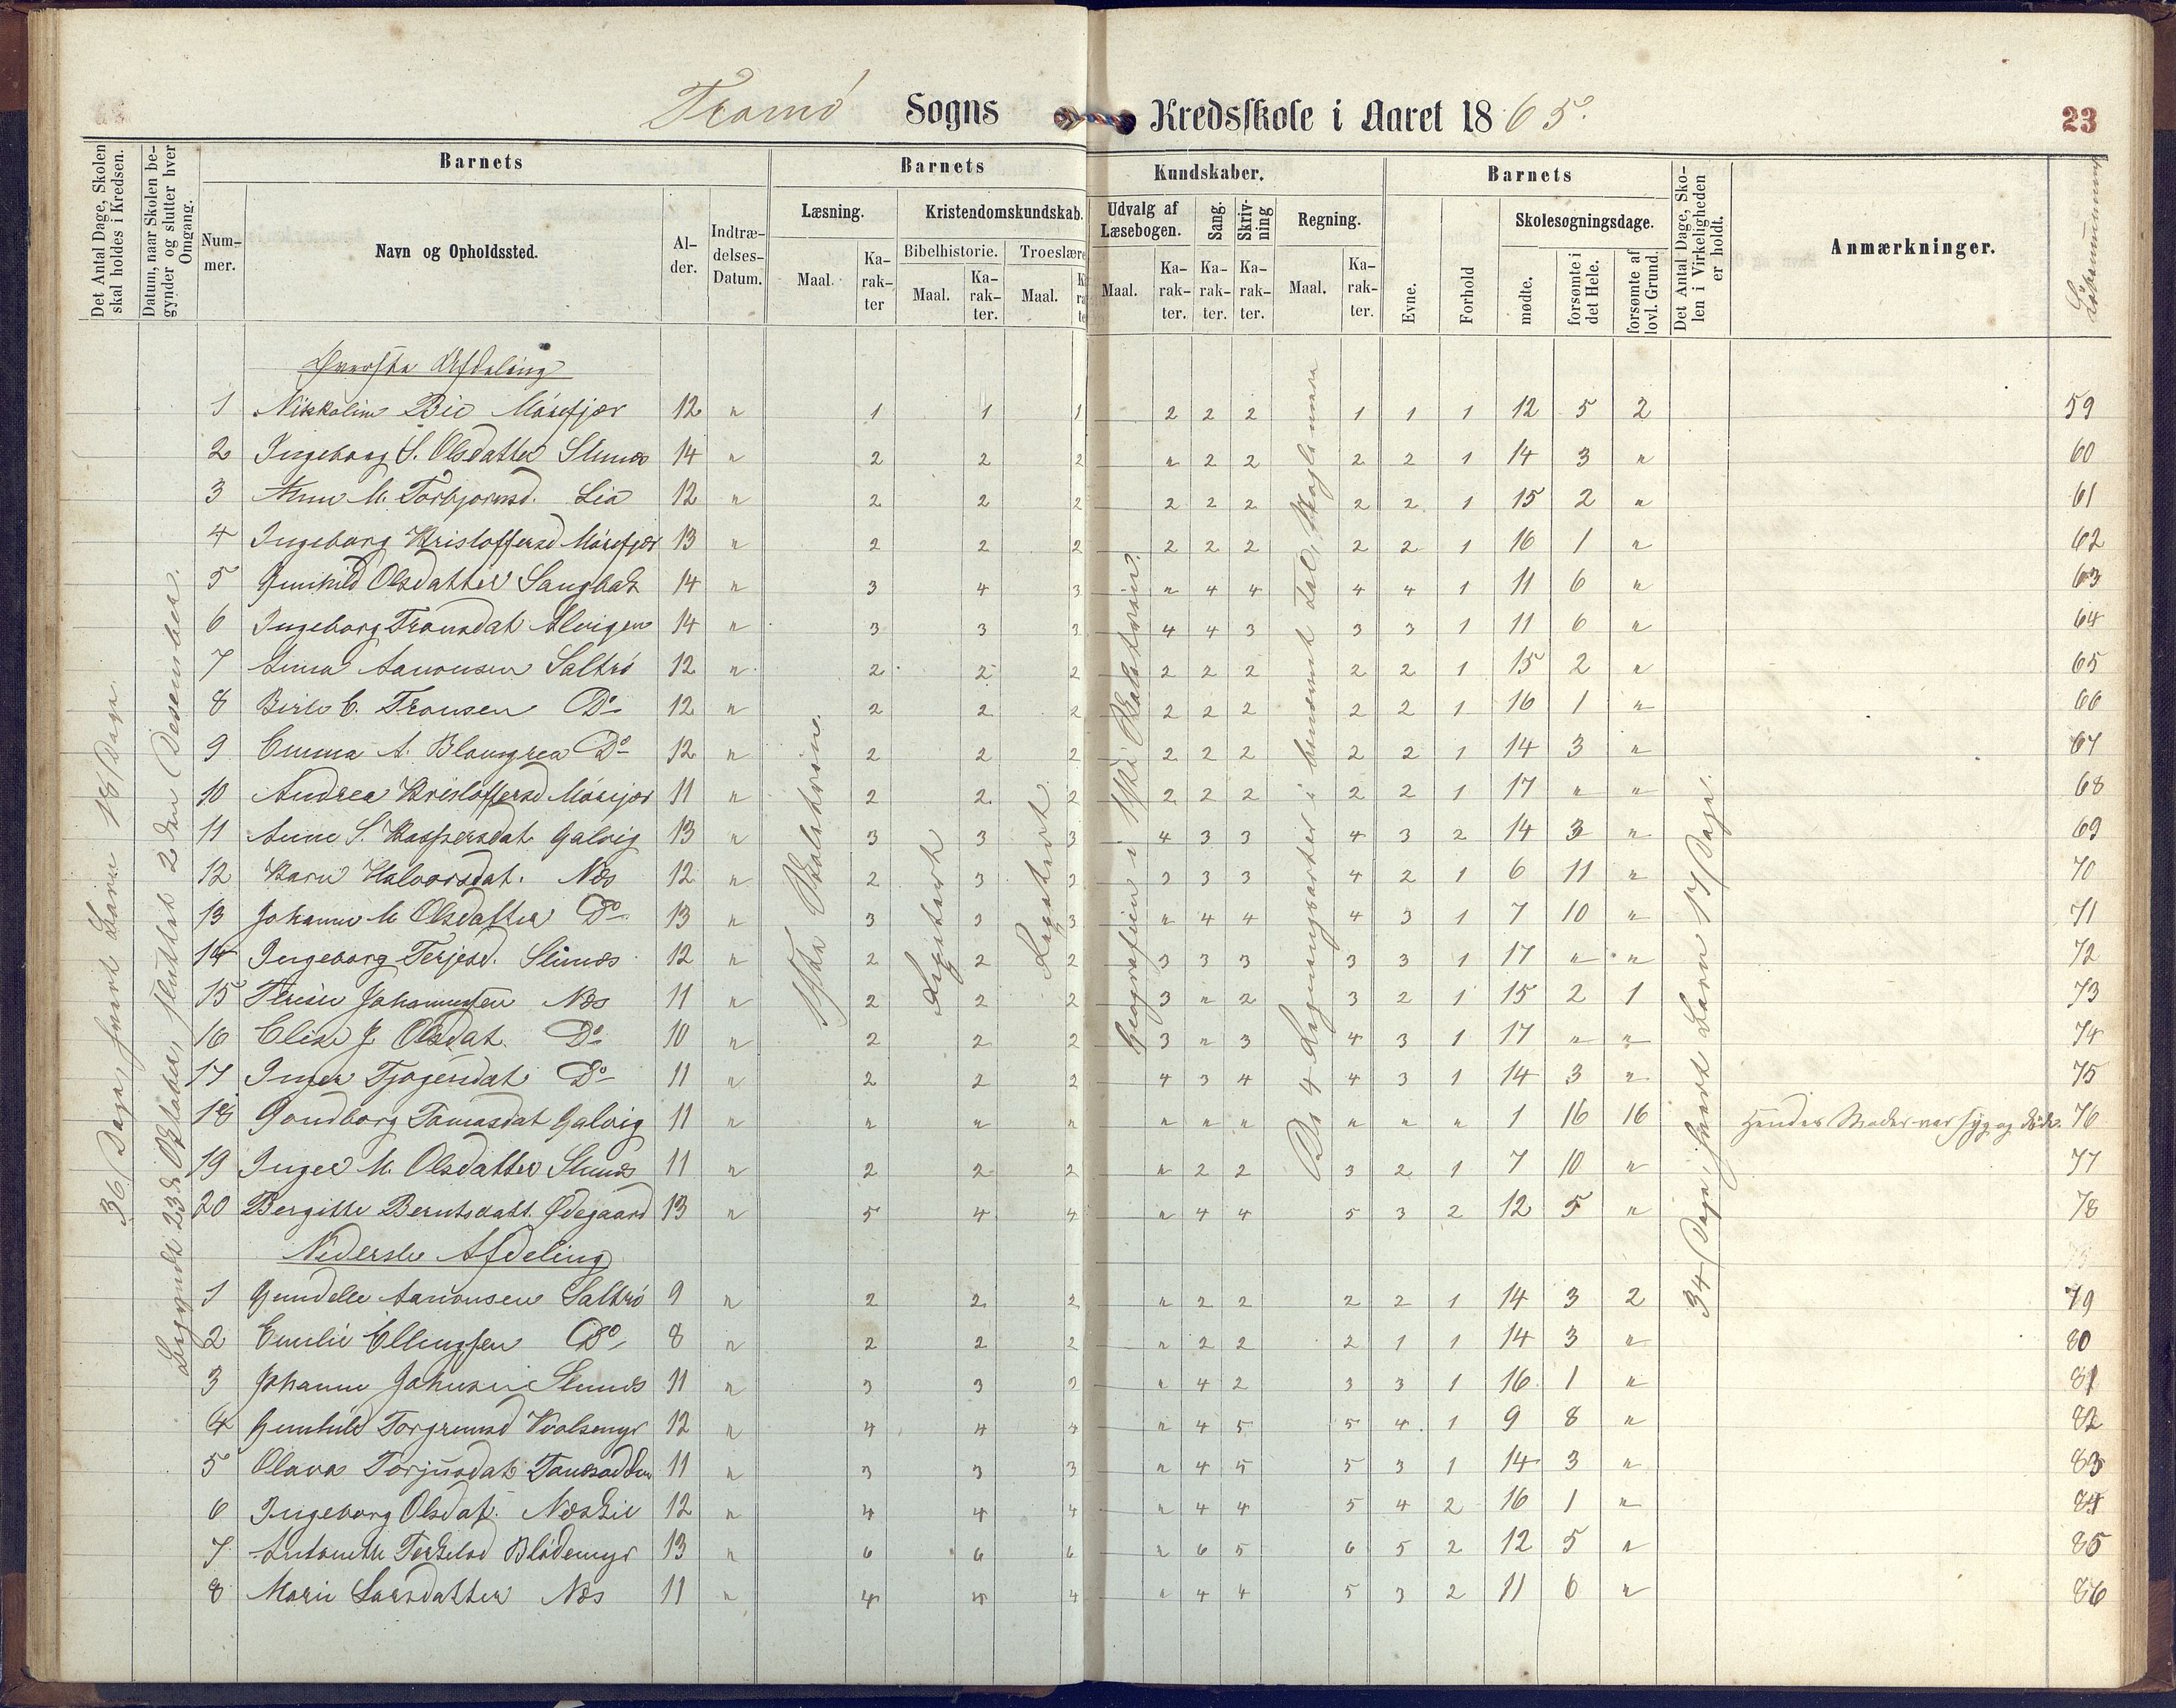 Tromø Sogns Kredsskole i Aaret 1865.
23
Det Antal Dage, Skolen skal holdes i Kredsen.
Datum, naar Skolen begynder og slutter hver Omgang.
Barnets
Nummer.
Navn og Opholdssted.
Alder.
Indtrædelses-Datum.
Barnets Kundskaber.
Læsning. Maal. Karakter
Kristendomskundskab. Bibelhistorie. Maal. Karakter. Troeslære Maal.
Udvalg af Læsebogen. Maal. Karakter.
Sang. Karakter.
Skrivning Karakter.
Regning. Maal. Karakter.
Barnets
Evne.
Forhold
Skolesøgningsdage.
mødte.
forsømte i det Hele.
forsømte af lovl. Grund.
Det Antal Dage, Skolen i Virkeligheden er holdt.
Anmærkninger.
Løbenummer
36 Dage, hvert Barn 18 Dage.
Begyndt 23de Oktober, sluttet 2den Desember.
Repetert
Repetert
De 4 Regningsarter i benævnt Tal,
34 Dage, hvert Barn 17 Dage.
Øverste Afdeling
1 Nikkoline Bie Mørefjær 12 " 1 1 1 2 2 2 1 1 1 12 5 2 59
2 Ingeborg S. Olsdatter 14 " 2 2 2 " 2 2 2 2 1 14 3 " 60
3 Anne M. Torbjørnsd. Lia 12 " 2 2 2 2 2 2 2 2 1 15 2 " 61
4 Ingeborg Kristoffersd Mørefjær 13 " 2 2 2 2 2 2 2 2 1 16 1 " 62
5 Gunhild Olsdatter Sangbæk 14 " 3 4 3 " 4 4 4 4 1 11 6 " 63
6 Ingeborg Tronsdat Alvigen 14 " 3 3 3 4 4 3 3 3 1 11 6 " 64
7 Anna Aanonsen Saltrø 12 " 2 2 2 2 2 2 2 2 1 15 2 " 65
8 C. Tronsen Do 12 " 2 2 2 2 2 2 2 2 1 16 1 " 66
9 Emma A. Do 12 " 2 2 2 2 2 2 2 2 1 14 3 " 67
10 Andrea Kristoffersd Mørefjær 11 " 2 2 2 2 2 2 2 2 1 17 " " 68
11 Anne S. Kaspersdat Galvig 13 " 3 3 3 4 3 3 4 3 2 14 3 " 69
12 Karen Halvorsdat. Næs 12 " 2 3 3 3 3 3 4 2 1 6 11 " 70
13 Johanne M Olsdatter Do 13 " 3 3 3 " 4 4 4 3 1 7 10 " 71
14 Ingeborg Terjesd. 12 " 2 2 2 3 3 3 3 3 1 17 " " 72
15 Johannessen Næs 11 " 2 2 2 3 " 2 3 2 1 15 2 1 73
16 Elise J Olsdat. Do 10 " 2 2 2 3 " 3 4 3 1 17 " " 74
17 Inger Do 11 " 2 2 2 4 3 4 4 3 1 14 3 " 75
18 Gondborg Tomasdat Galvig 11 " " " " " " " " " " 1 16 16 Hendes Moder var syg og døde. 76
19 Inger M. Olsdatter 11 " 2 2 2 " 2 2 3 2 1 7 10 " 77
20 Bergitte Berntsdatt. Ødegaard 13 " 5 4 4 " 4 4 5 3 2 12 5 " 78
Nederste Afdeling
1 Gundelle Aanonsen Saltrø 9 " 2 2 2 " 2 2 2 2 1 14 3 2 79
2 Emilie Ellingsen Do 8 " 2 2 2 " 2 2 2 1 1 14 3 " 80
3 Johanne 11 " 3 3 3 " 4 2 3 3 1 16 1 " 81
4 Gunhild Torgrimsd 12 " 4 4 4 " 4 5 5 4 1 9 8 " 82
5 Olava Torjusdat 11 " 3 3 3 " 4 5 5 3 1 14 3 " 83
6 Ingeborg Olsdat. Næskil 12 " 4 4 4 " 4 4 5 4 2 16 1 " 84
7 Antonette Terkelsd Blødemyr 13 " 6 6 6 " 6 5 6 5 2 12 5 " 85
8 Marie Larsdatter Næs 11 " 4 4 " 4 4 5 3 2 11 6 " 86